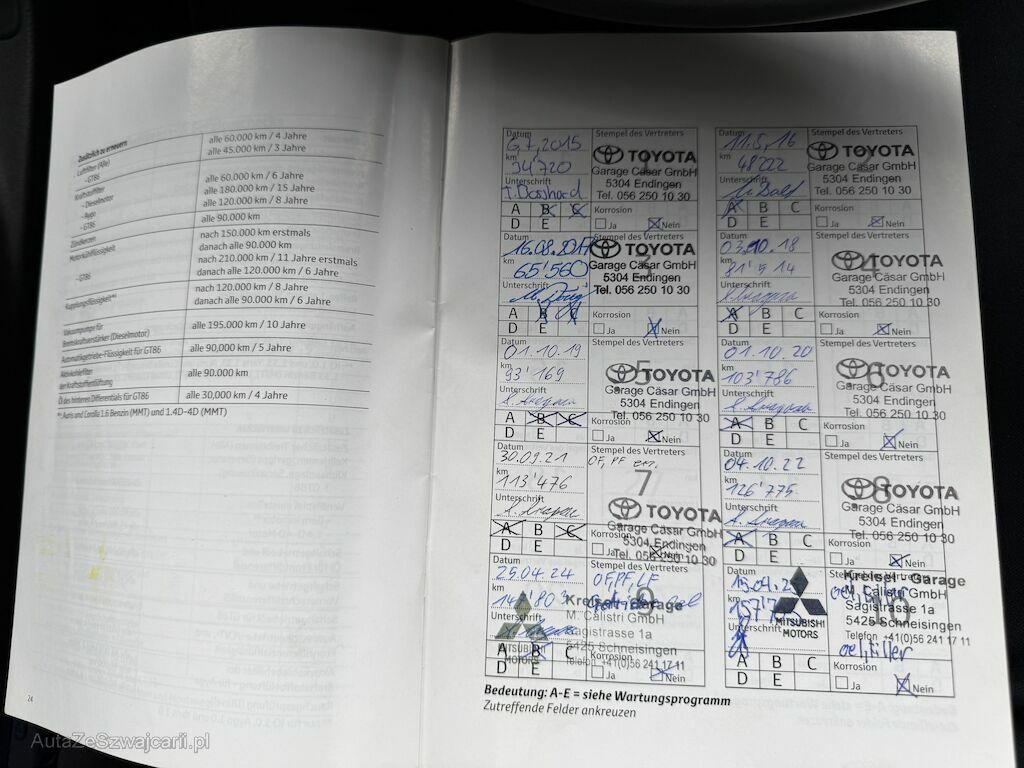 Zusätzlich zu erneuern
Luftfilter (Alle) alle 60.000 km / 4 Jahre
- GT86 alle 45.000 km / 3 Jahre
Kraftstofffilter
- Dieselmotor alle 60.000 km / 6 Jahre
- Aygo alle 180.000 km / 15 Jahre
- GT86 alle 120.000 km / 8 Jahre
Zündkerzen alle 90.000 km
Motorkühlflüssigkeit nach 150.000 km erstmals
danach alle 90.000 km
- GT86 nach 210.000 km / 11 Jahre erstmals
danach alle 120.000 km / 6 Jahre
Kupplungsflüssigkeit** nach 120.000 km / 8 Jahre
danach alle 90.000 km / 6 Jahre
Vakuumpumpe für
Bremskraftverstärker (Dieselmotor) alle 195.000 km / 10 Jahre
Automatikgetriebe-Flüssigkeit für GT86 alle 90,000 km / 5 Jahre
Aktivkohlefilter
der Kraftstofftentlüftung alle 90.000 km
Öl des hinteren Differentials für GT86 alle 30,000 km / 4 Jahre
** Auris und Corolla 1.6 Benzin (MMT) und 1.4D-4D (MMT)
24
Datum
6,7,2015
km
34'720
Unterschrift
T. Bosshard
A B C
D E
Stempel des Vertreters
1
TOYOTA
Garage Cäsar GmbH
5304 Endingen
Tel. 056 250 10 30
Korrosion
Ja Nein
Datum
11.5.16
km
48222
Unterschrift
A B C
D E
Stempel des Vertreters
2
TOYOTA
Garage Cäsar GmbH
5304 Endingen
Tel. 056 250 10 30
Korrosion
Ja Nein
Datum
16.08.2017
km
65'560
Unterschrift
A B C
D E
Stempel des Vertreters
3
TOYOTA
Garage Cäsar GmbH
5304 Endingen
Tel. 056 250 10 30
Korrosion
Ja Nein
Datum
03.10.18
km
81'514
Unterschrift
A B C
D E
Stempel des Vertreters
4
TOYOTA
Garage Cäsar GmbH
5304 Endingen
Tel. 056 250 10 30
Korrosion
Ja Nein
Datum
01.10.19
km
93'169
Unterschrift
A B C
D E
Stempel des Vertreters
5
TOYOTA
Garage Cäsar GmbH
5304 Endingen
Tel. 056 250 10 30
Korrosion
Ja Nein
Datum
01.10.20
km
103'786
Unterschrift
A B C
D E
Stempel des Vertreters
6
TOYOTA
Garage Cäsar GmbH
5304 Endingen
Tel. 056 250 10 30
Korrosion
Ja Nein
Datum
30.09.21
km
113'476
Unterschrift
A B C
D E
Stempel des Vertreters
OF, PF
7
TOYOTA
Garage Cäsar GmbH
5304 Endingen
Tel. 056 250 10 30
Korrosion
Ja Nein
Datum
04.10.22
km
126'775
Unterschrift
A B C
D E
Stempel des Vertreters
8
TOYOTA
Garage Cäsar GmbH
5304 Endingen
Tel. 056 250 10 30
Korrosion
Ja Nein
Datum
25.04.24
km
Unterschrift
MITSUBISHI
MOTORS
A B C
D E
Stempel des Vertreters
OF, PF, LF
9
Kreisel Garage
M. Calistri GmbH
Sagistrasse 1a
5425 Schneisingen
Telefon +41(0)56 241 17 11
Korrosion
Ja Nein
Datum
km
Unterschrift
MITSUBISHI
MOTORS
A B C
D E
Stempel des Vertreters
10
Kreisel Garage
M. Calistri GmbH
Sagistrasse 1a
5425 Schneisingen
Telefon +41(0)56 241 17 11
Korrosion
Ja Nein
Bedeutung: A-E = siehe Wartungsprogramm
Zutreffende Felder ankreuzen
AutaZeSzwajcarii.pl